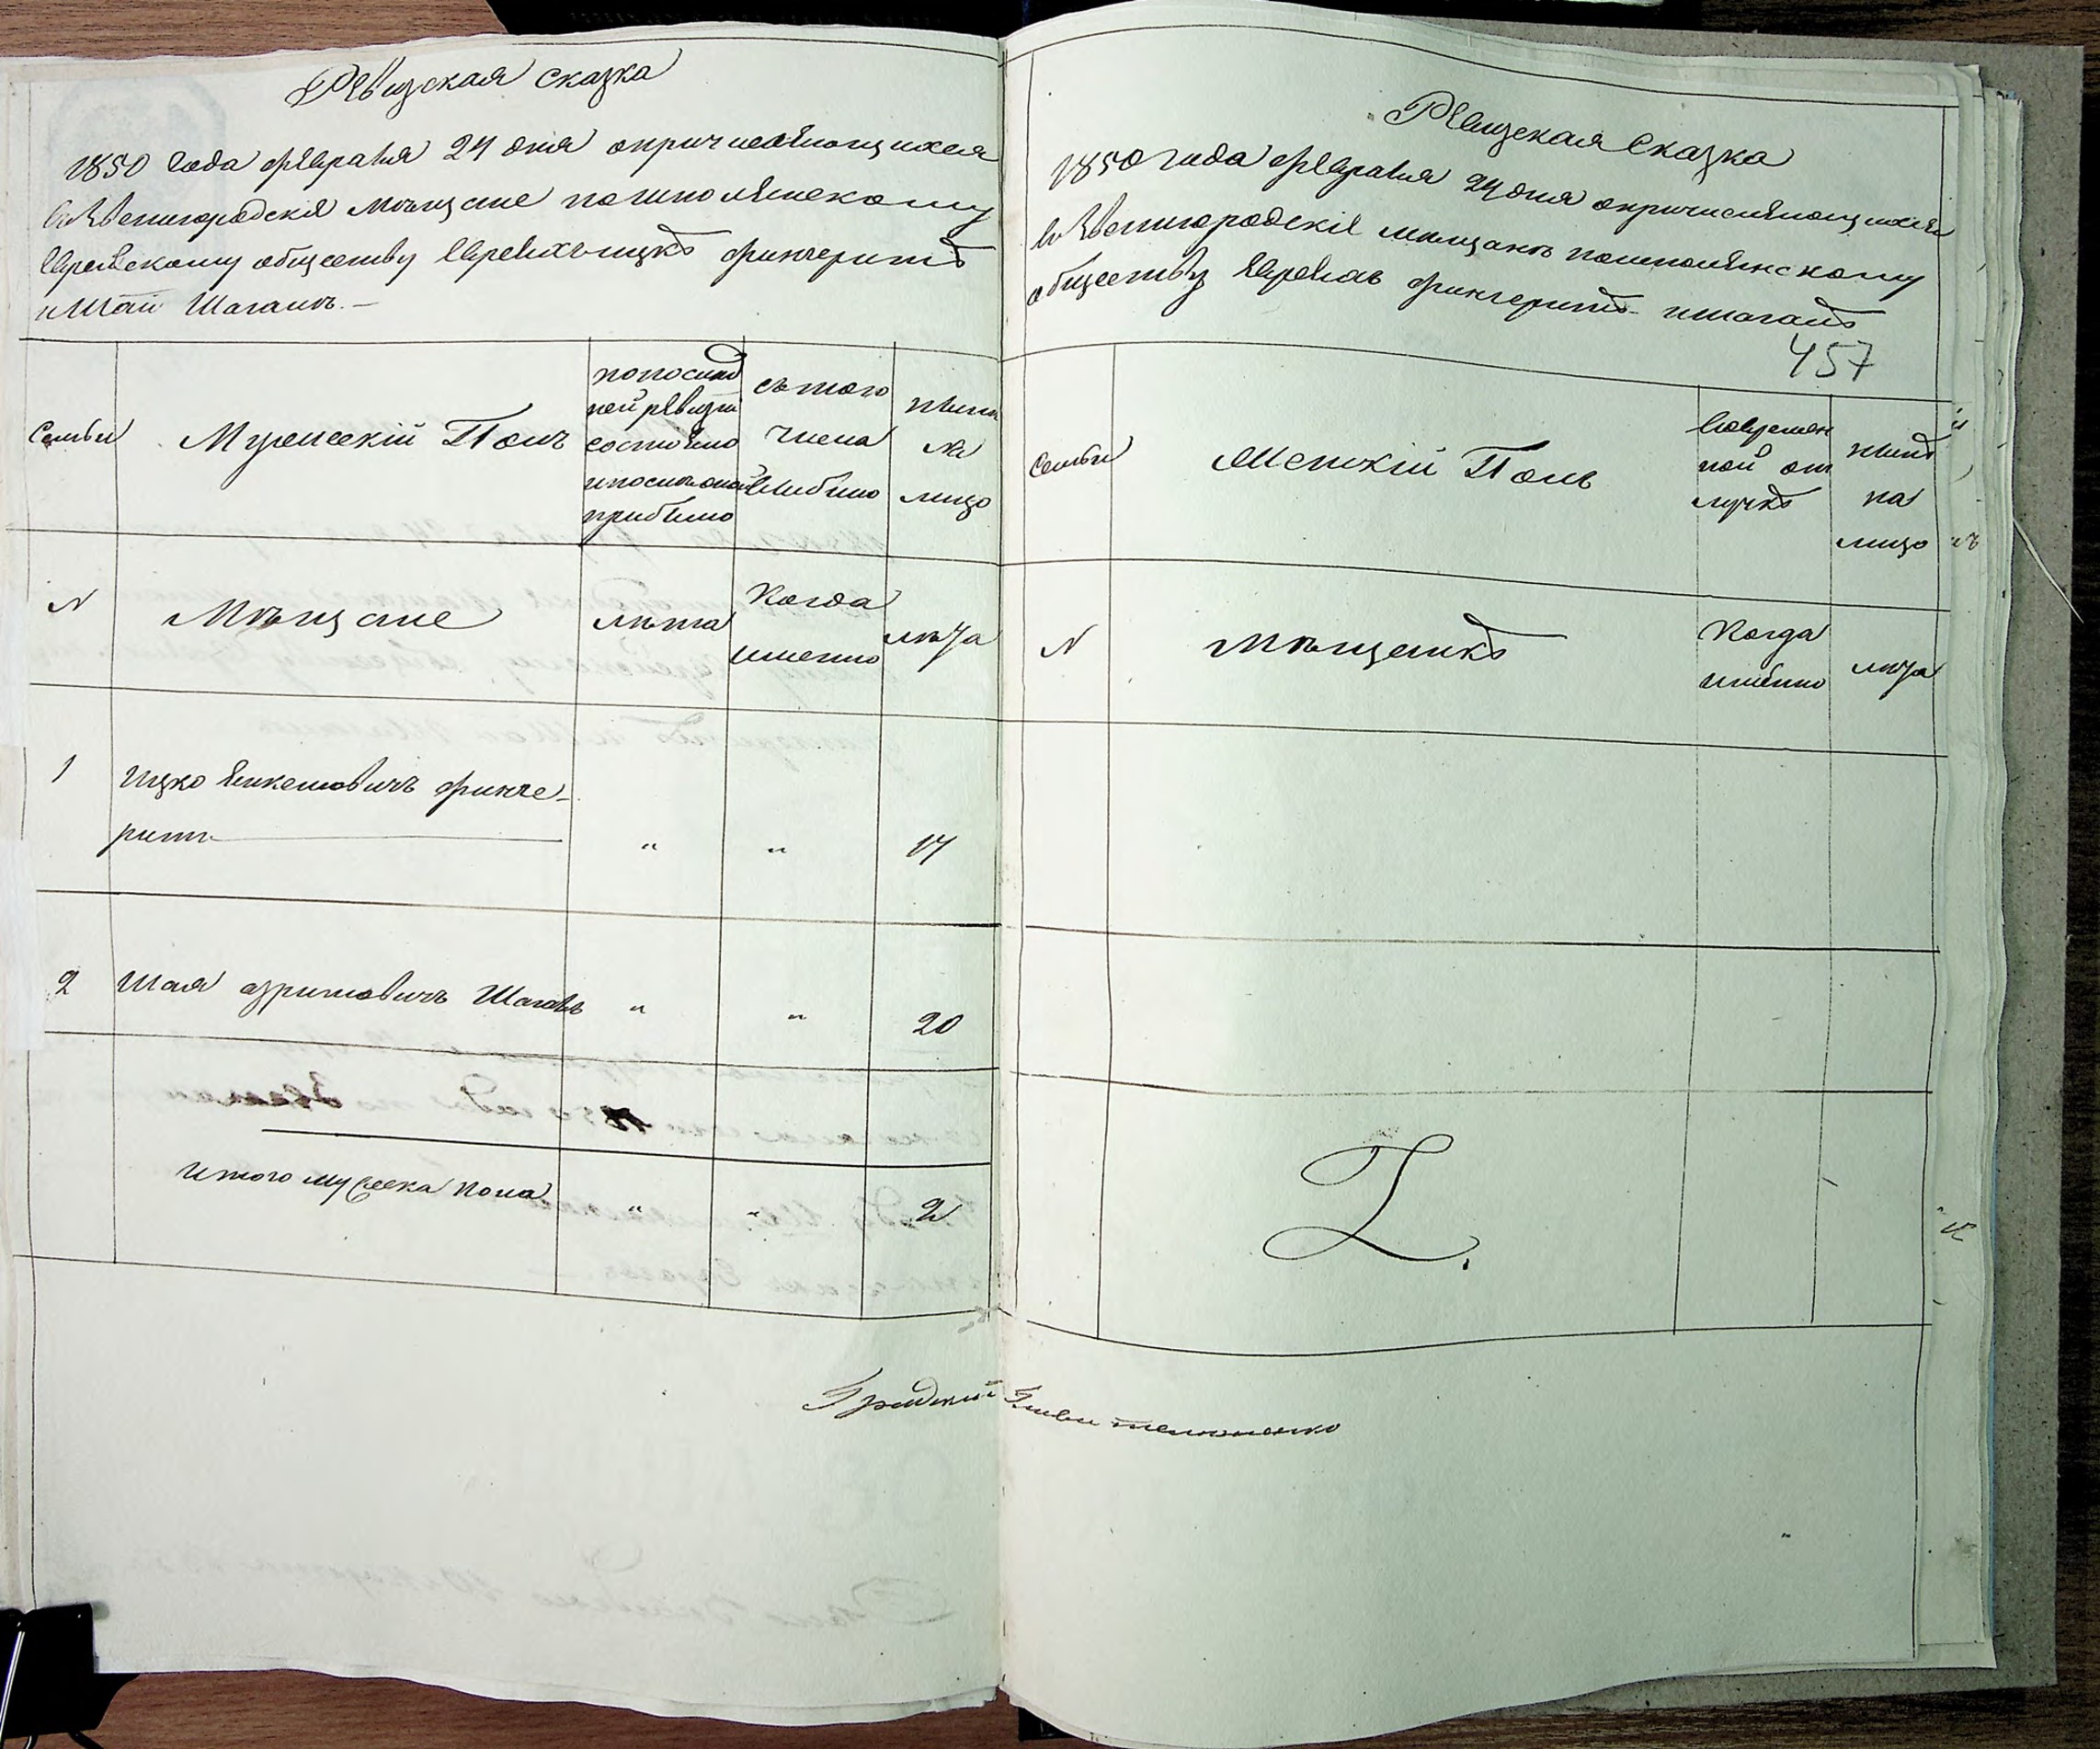 Ревизская сказка
1850 года февраля 24 дня опричисляющихся
в Звенигородскiе мѣщане пошполянскому
Еврейскому обществу Евреяхъ ицкѣ фингеритѣ
и Шаи Шагалѣ. —
Семьи
Мужескiй Полъ
попослед
ней ревизiи
состояло
и после оной
прибыло
съ того
числа
выбыло
нынѣ
на
лицо
N
Мѣщане
лѣта
Когда
именно
лѣта
1 Ицко Янкелiовичъ финге-
ритъ " " 17
2 Шая Шагалъ " " 20
итого мужеска пола " " 2
Ревизская Сказка
1850 года февраля 24 дня опричисляющихся
в Звенигородскiе мещанѣ пошполянскому
обществу Евреяхъ фингеритѣ и шагалѣ
457
Семьи
Женскiй Полъ
вовремен
ной от
лучкѣ
нынѣ
на
лицо
N
мѣщанкѣ
Когда
именно
лѣта
Градскiй Глава